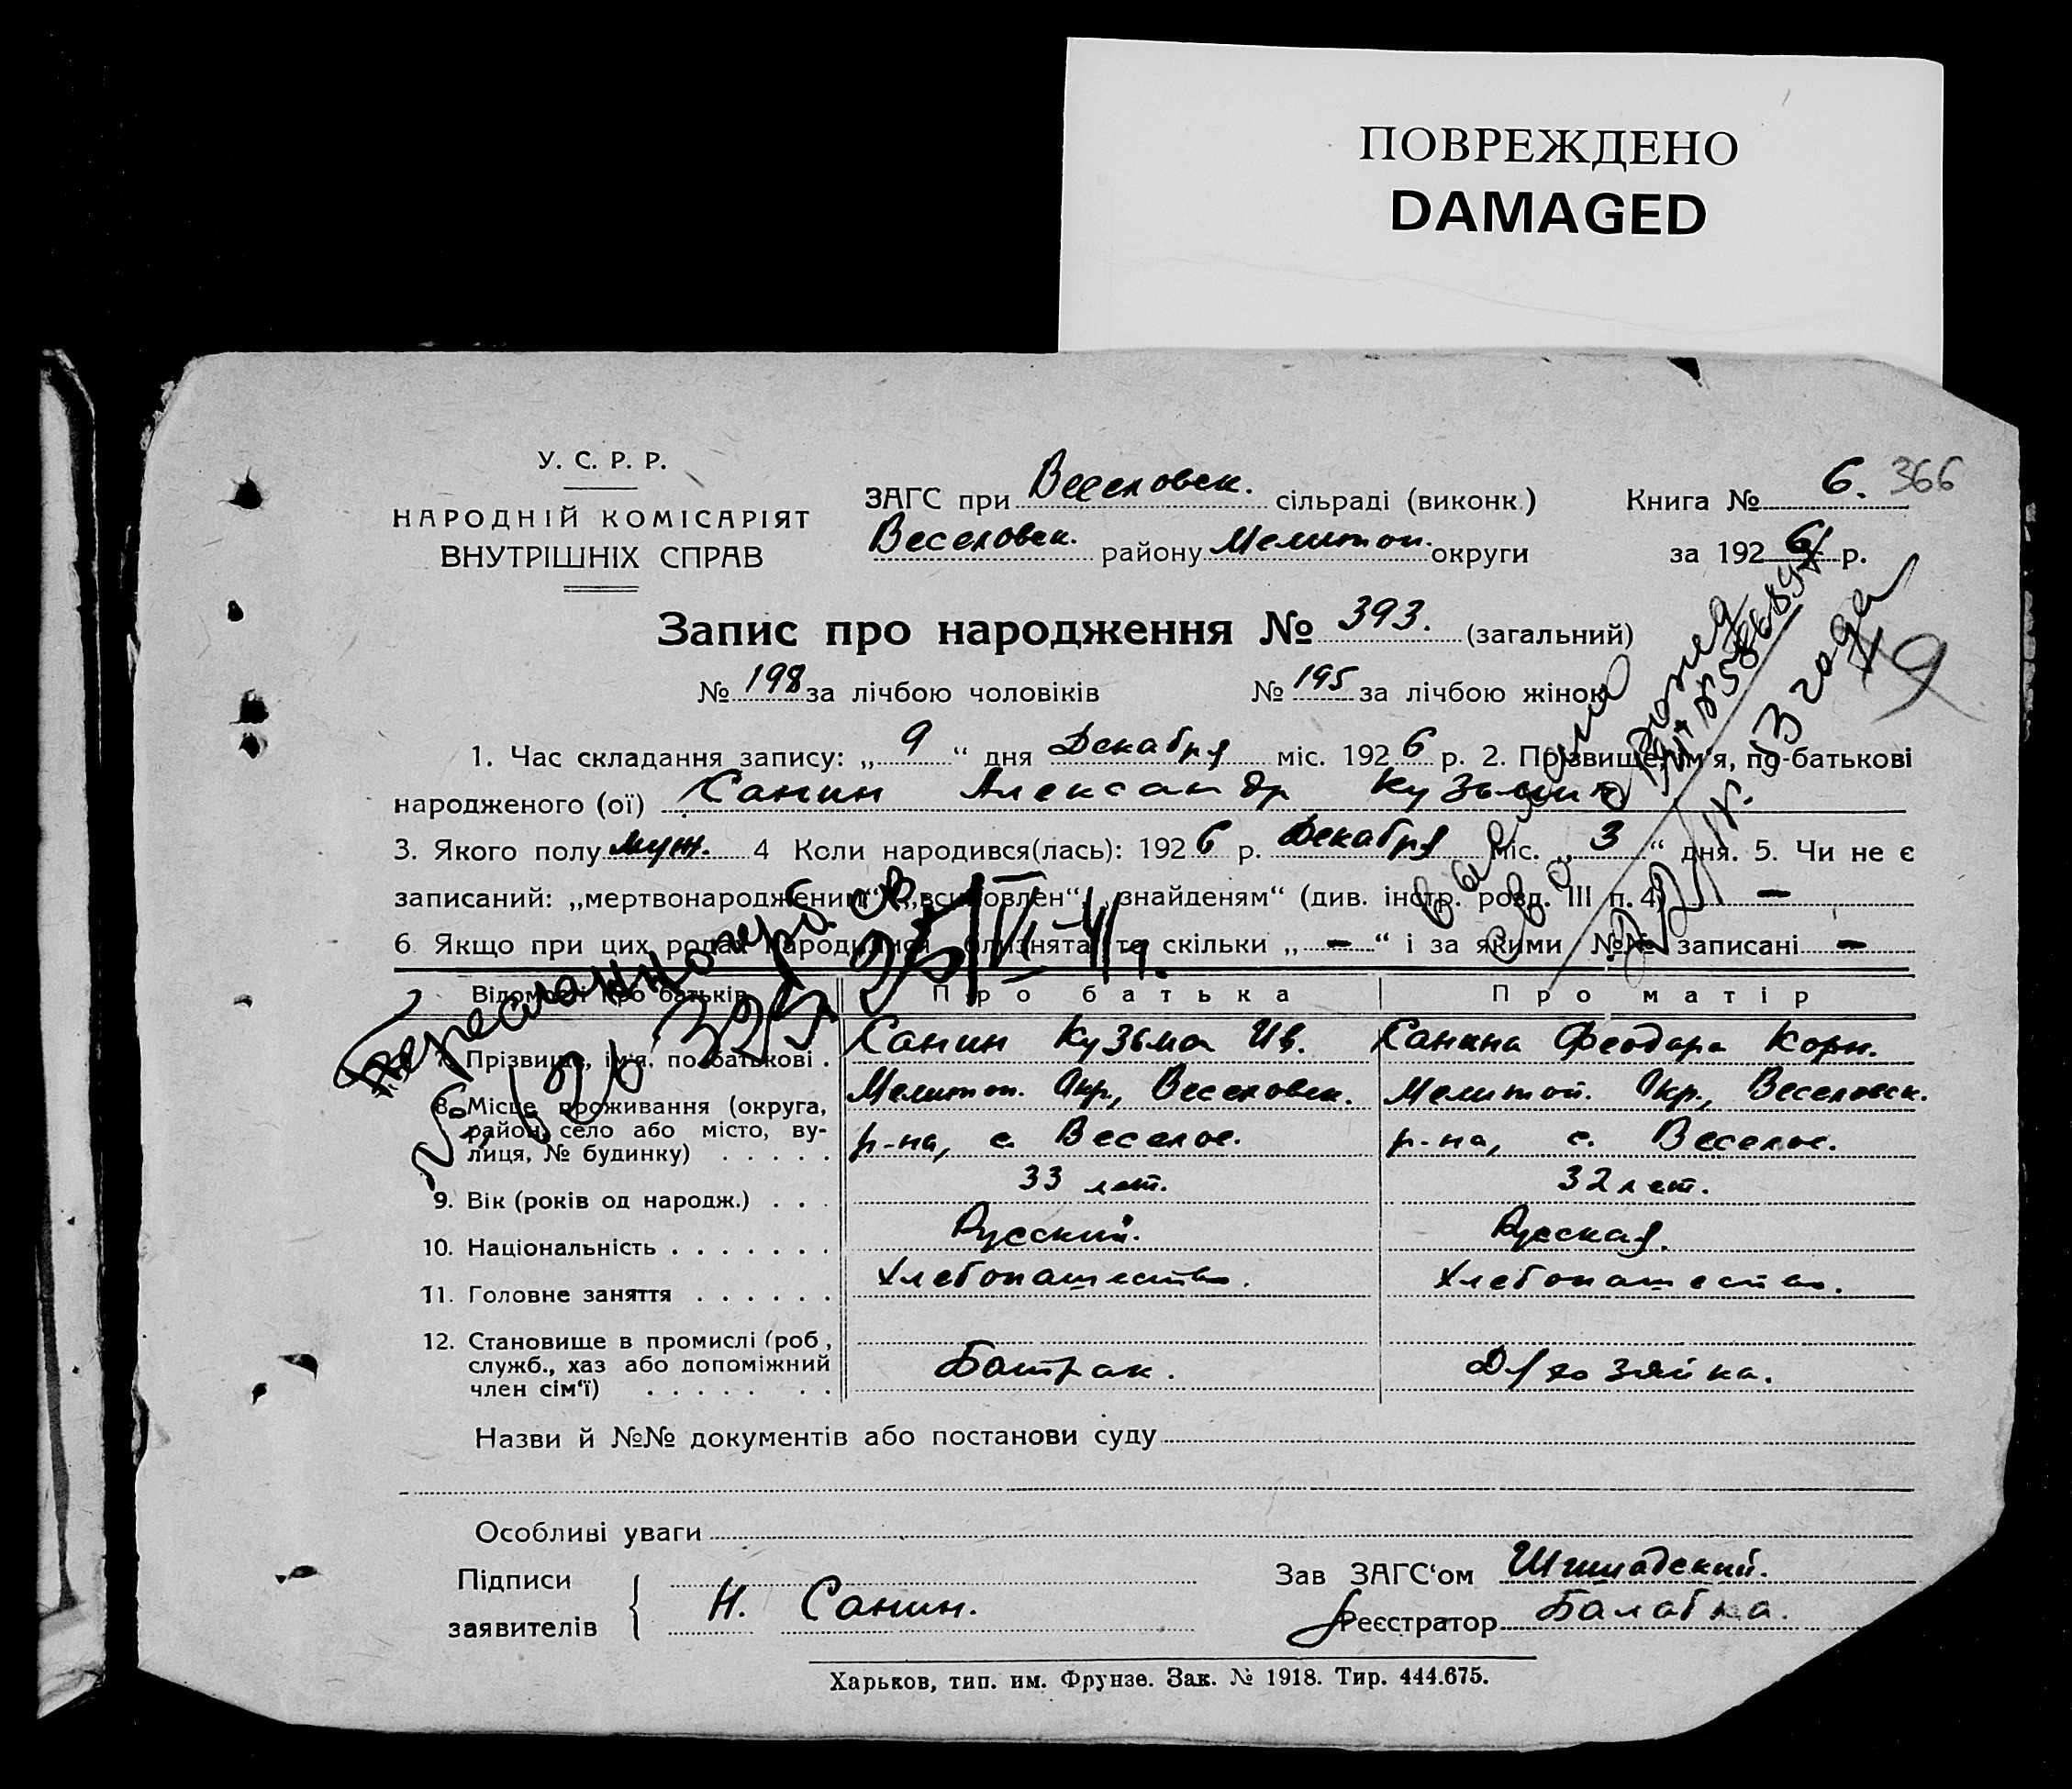 ПОВРЕЖДЕНО
DAMAGED
У. С. Р. Р.
НАРОДНІЙ КОМІСАРІЯТ
ВНУТРІШНІХ СПРАВ
ЗАГС при Веселовск. сільраді (виконк.)
Веселовск. району Мелитоп. округи
Книга № 6. 366
за 1926 р.
Запис про народження № 393. (загальний)
№ 198 за лічбою чоловіків № 195 за лічбою жінок
9
1. Час складання запису: „9“ дня Декабря міс. 1926 р. 2. Прізвище, ім'я, по-батькові
народженого (ої) Санин Александр Кузьмич
3. Якого полу муж. 4 Коли народився(лась): 1926 р. Декабря міс. „3“ дня. 5. Чи не є
записаний: „мертвонародженим“, „всиновлен“, „знайденям“ (див. інстр. розд. III п. 4) —
6. Якщо при цих родах народилися близнята, то скільки „—“ і за якими №№ записані —
Відомості про батьків
Про батька
Про матір
7. Прізвище, ім'я, по-батькові .
Санин Кузьма Ив.
Санина Феодора Корн.
8. Місце проживання (округа,
район, село або місто, ву-
лиця, № будинку) . . . . .
Мелитоп. Окр., Веселовск.
р-на, с. Веселое.
Мелитоп. Окр., Веселовск.
р-на, с. Веселое.
9. Вік (років од народж.) . . .
33 лет.
32 лет.
10. Національність . . . . . . .
Русский.
Русская.
11. Головне заняття . . . . . .
Хлебопашество.
Хлебопашество.
12. Становище в промислі (роб,
служб., хаз або допоміжний
член сім'ї) . . . . . . .
Батрак.
Д/хозяйка.
Назви й №№ документів або постанови суду
Особливі уваги
Підписи
заявителів
Н. Санин.
Зав ЗАГС'ом
Реєстратор Балабка.
Харьков, тип. им. Фрунзе. Зак. № 1918. Тир. 444.675.